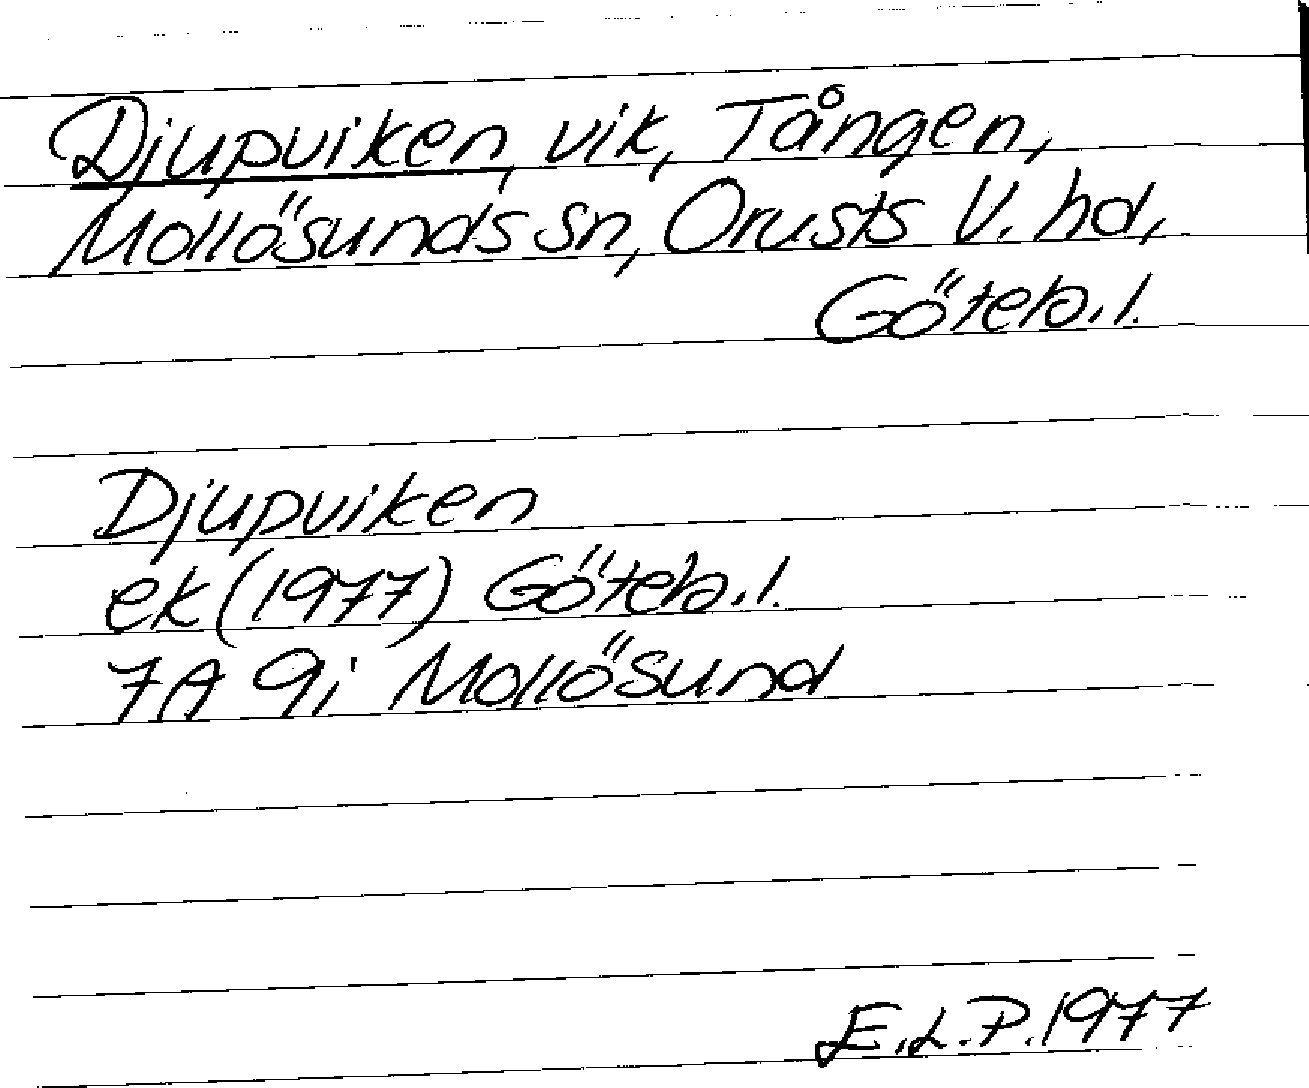 Djupviken, vik, Tången,
Mollösunds sn, Orusts V. hd,
Göteb. l.
Djupviken
ek (1977) Göteb. l.
7A 9i Mollösund
E.L.P. 1977